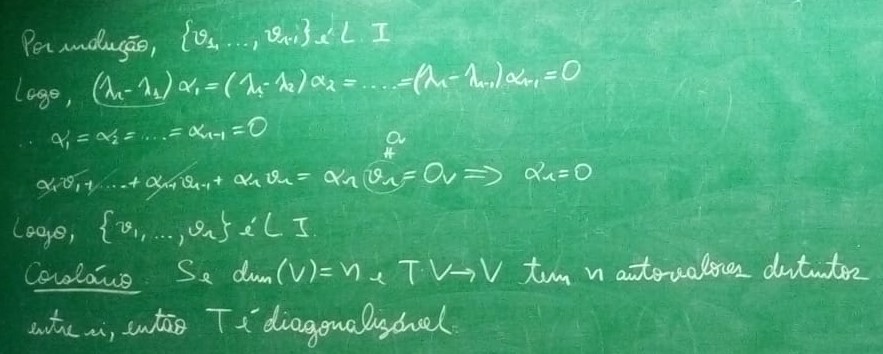 Por indução, {v₁, ..., vᵣ₋₁} é L. I
Logo, (λᵣ-λ₁)α₁=(λᵣ-λ₂)α₂=....=(λᵣ-λᵣ₋₁)αᵣ₋₁=0
∴ α₁=α₂=....=αᵣ₋₁=0
α₁v₁+....+αᵣ₋₁vᵣ₋₁+αᵣvᵣ= αᵣvᵣ=0ᵥ⟹ αᵣ=0
0ᵥ
≠
Logo, {v₁,...,vᵣ} é L I.
Corolário. Se dim(V)=n e T:V→V tem n autovalores distintos
entre si, então T é diagonalizável.